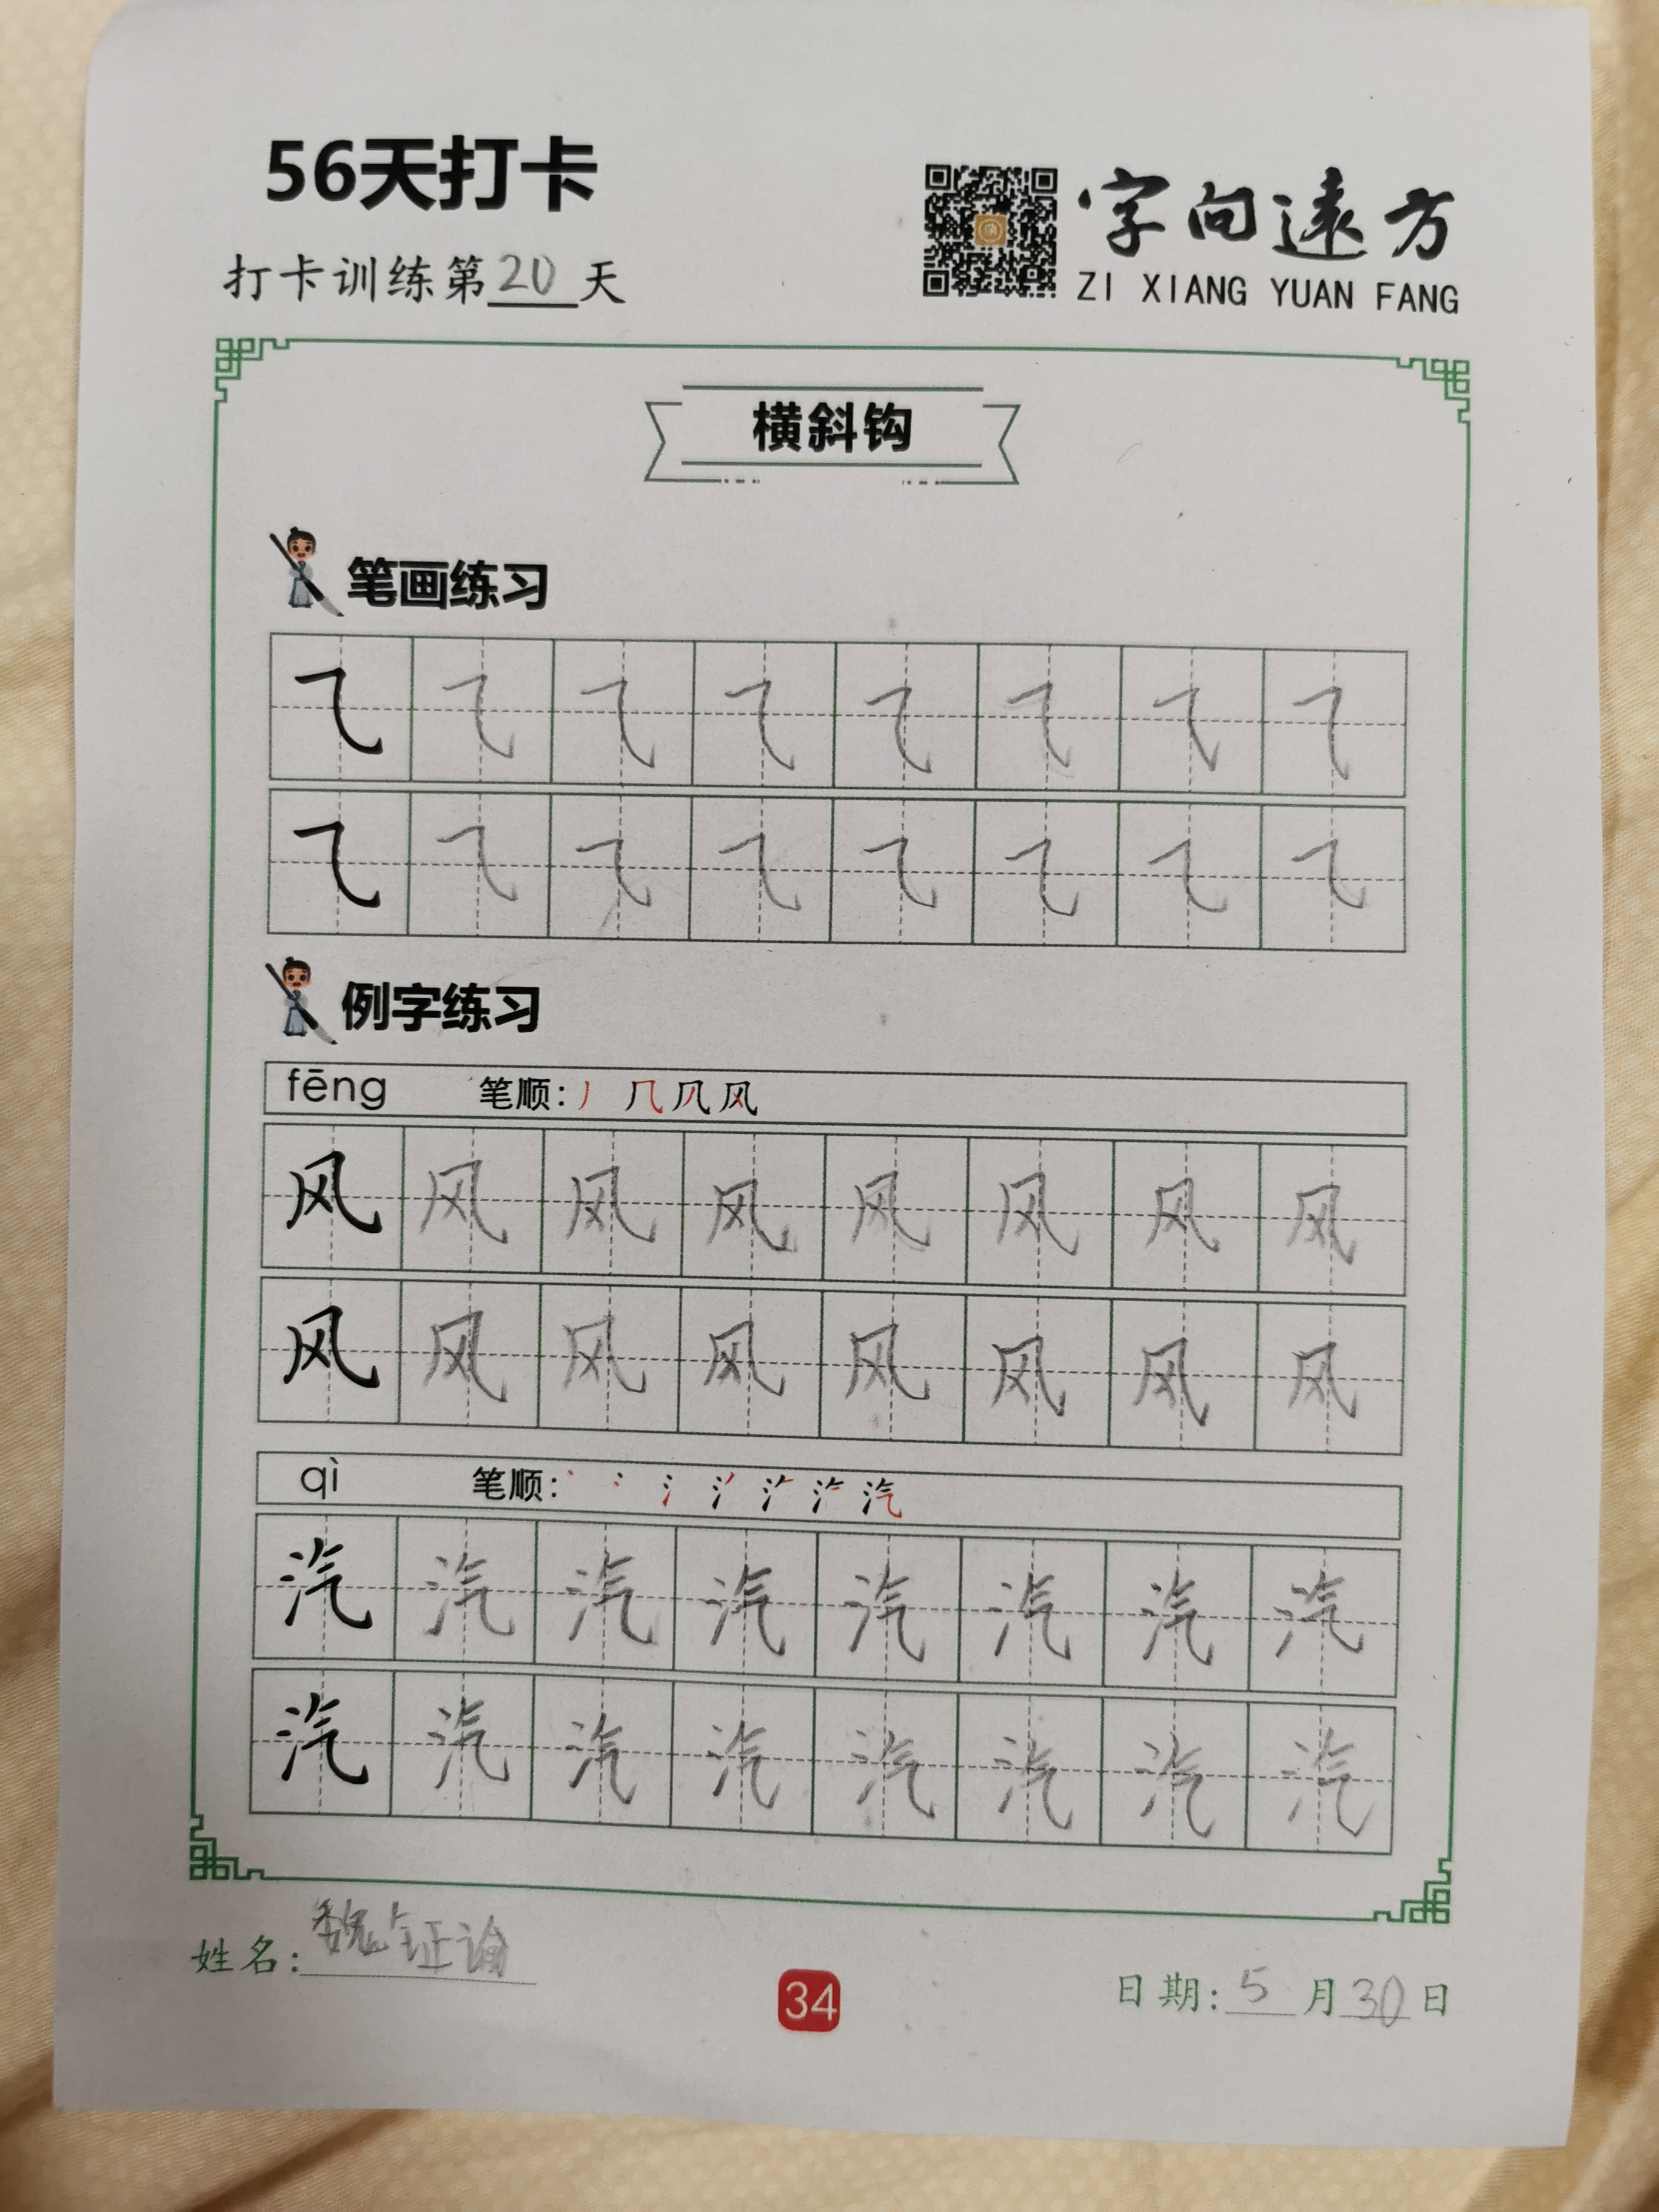 56天打卡
字向遠方
ZI XIANG YUAN FANG
打卡训练第20天
横斜钩
笔画练习
㇈ ㇈ ㇈ ㇈ ㇈ ㇈ ㇈ ㇈
㇈ ㇈ ㇈ ㇈ ㇈ ㇈ ㇈ ㇈
例字练习
fēng 笔顺: 丿 几 风
风 风 风 风 风 风 风 风
风 风 风 风 风 风 风 风
qì 笔顺: 丶 氵 汽
汽 汽 汽 汽 汽 汽 汽 汽
汽 汽 汽 汽 汽 汽 汽 汽
姓名:魏钲谕
34
日期:5月30日